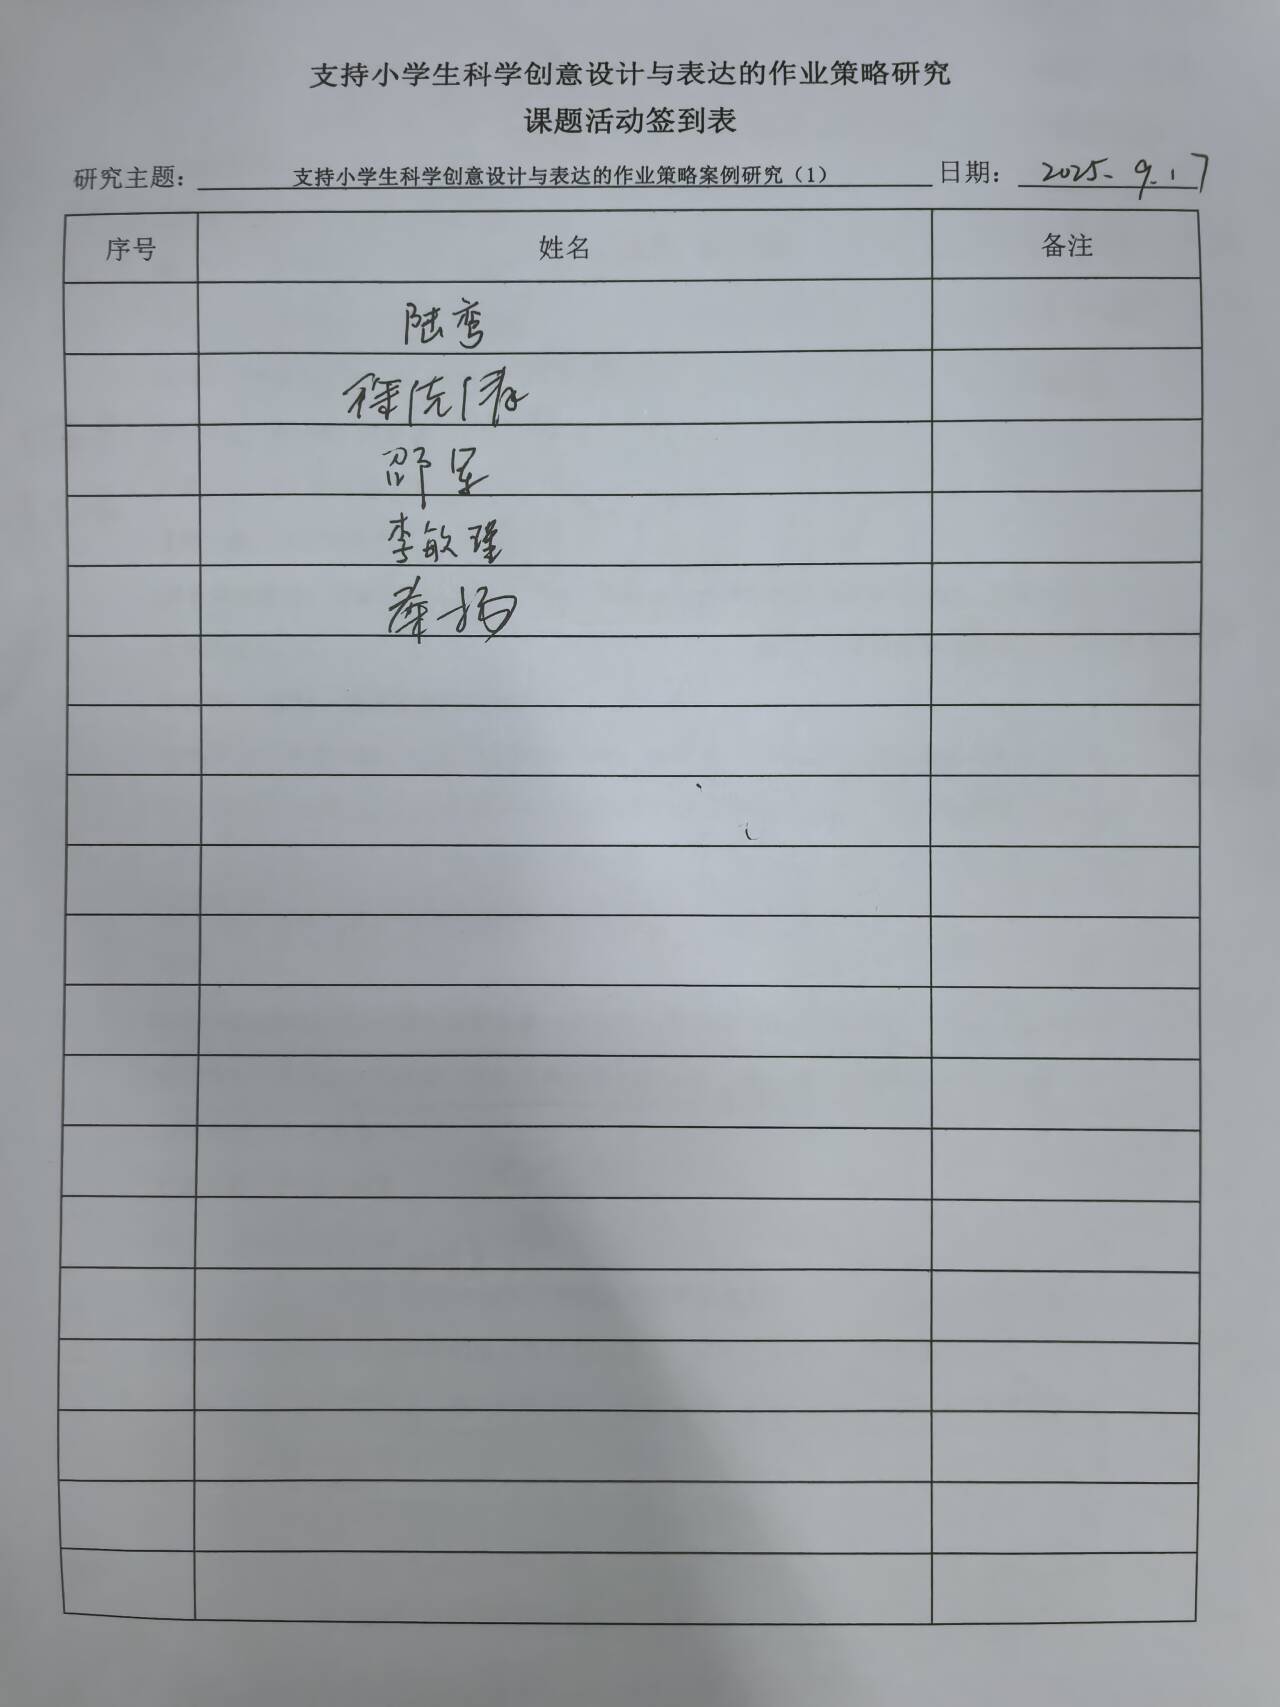 支持小学生科学创意设计与表达的作业策略研究
课题活动签到表
研究主题： 支持小学生科学创意设计与表达的作业策略案例研究（1） 日期： 2025.9.17
序号 姓名 备注
陆鸾
徐
邵军
李敏瑾
秦扬